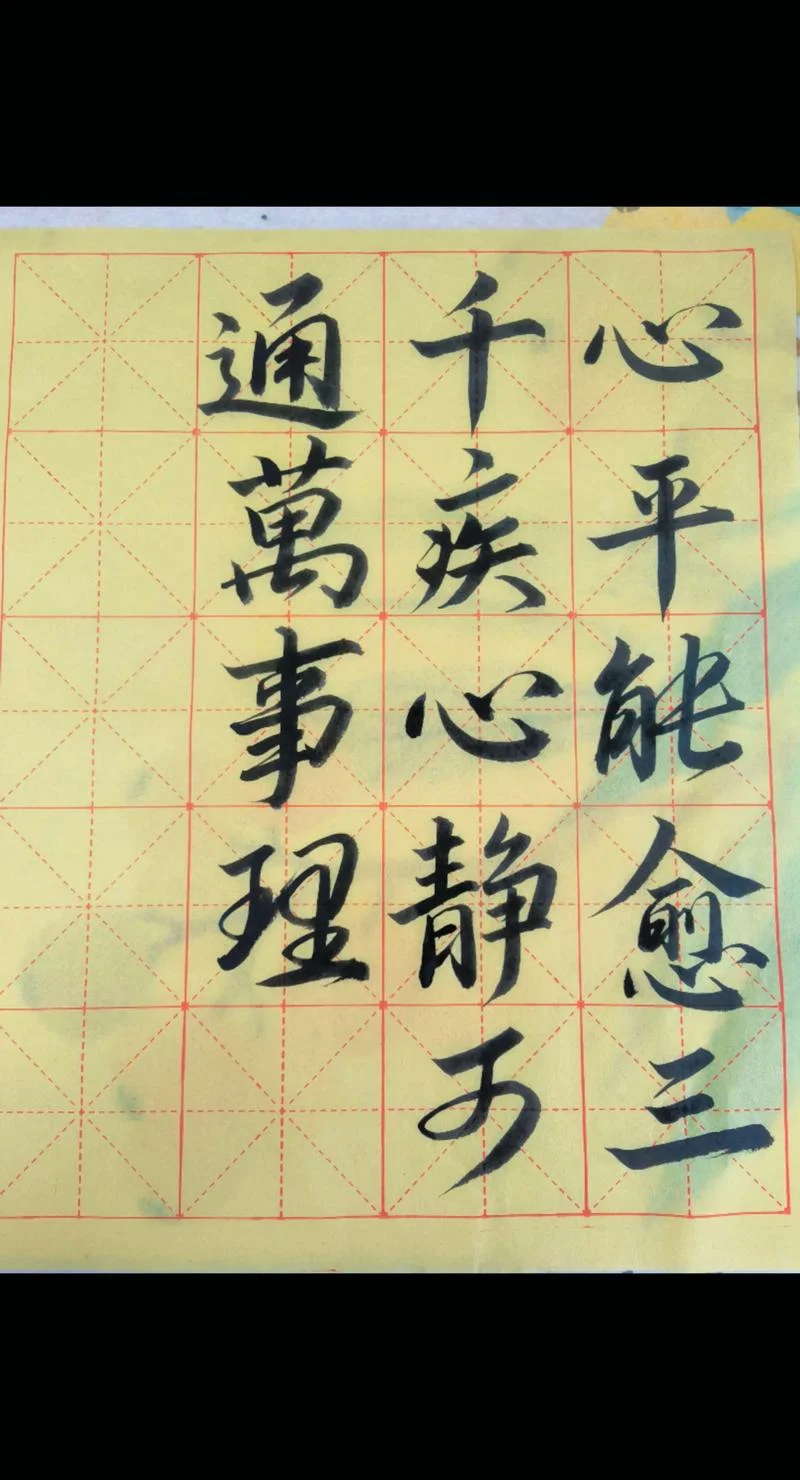 心平能愈三
千疾心静可
通萬事理